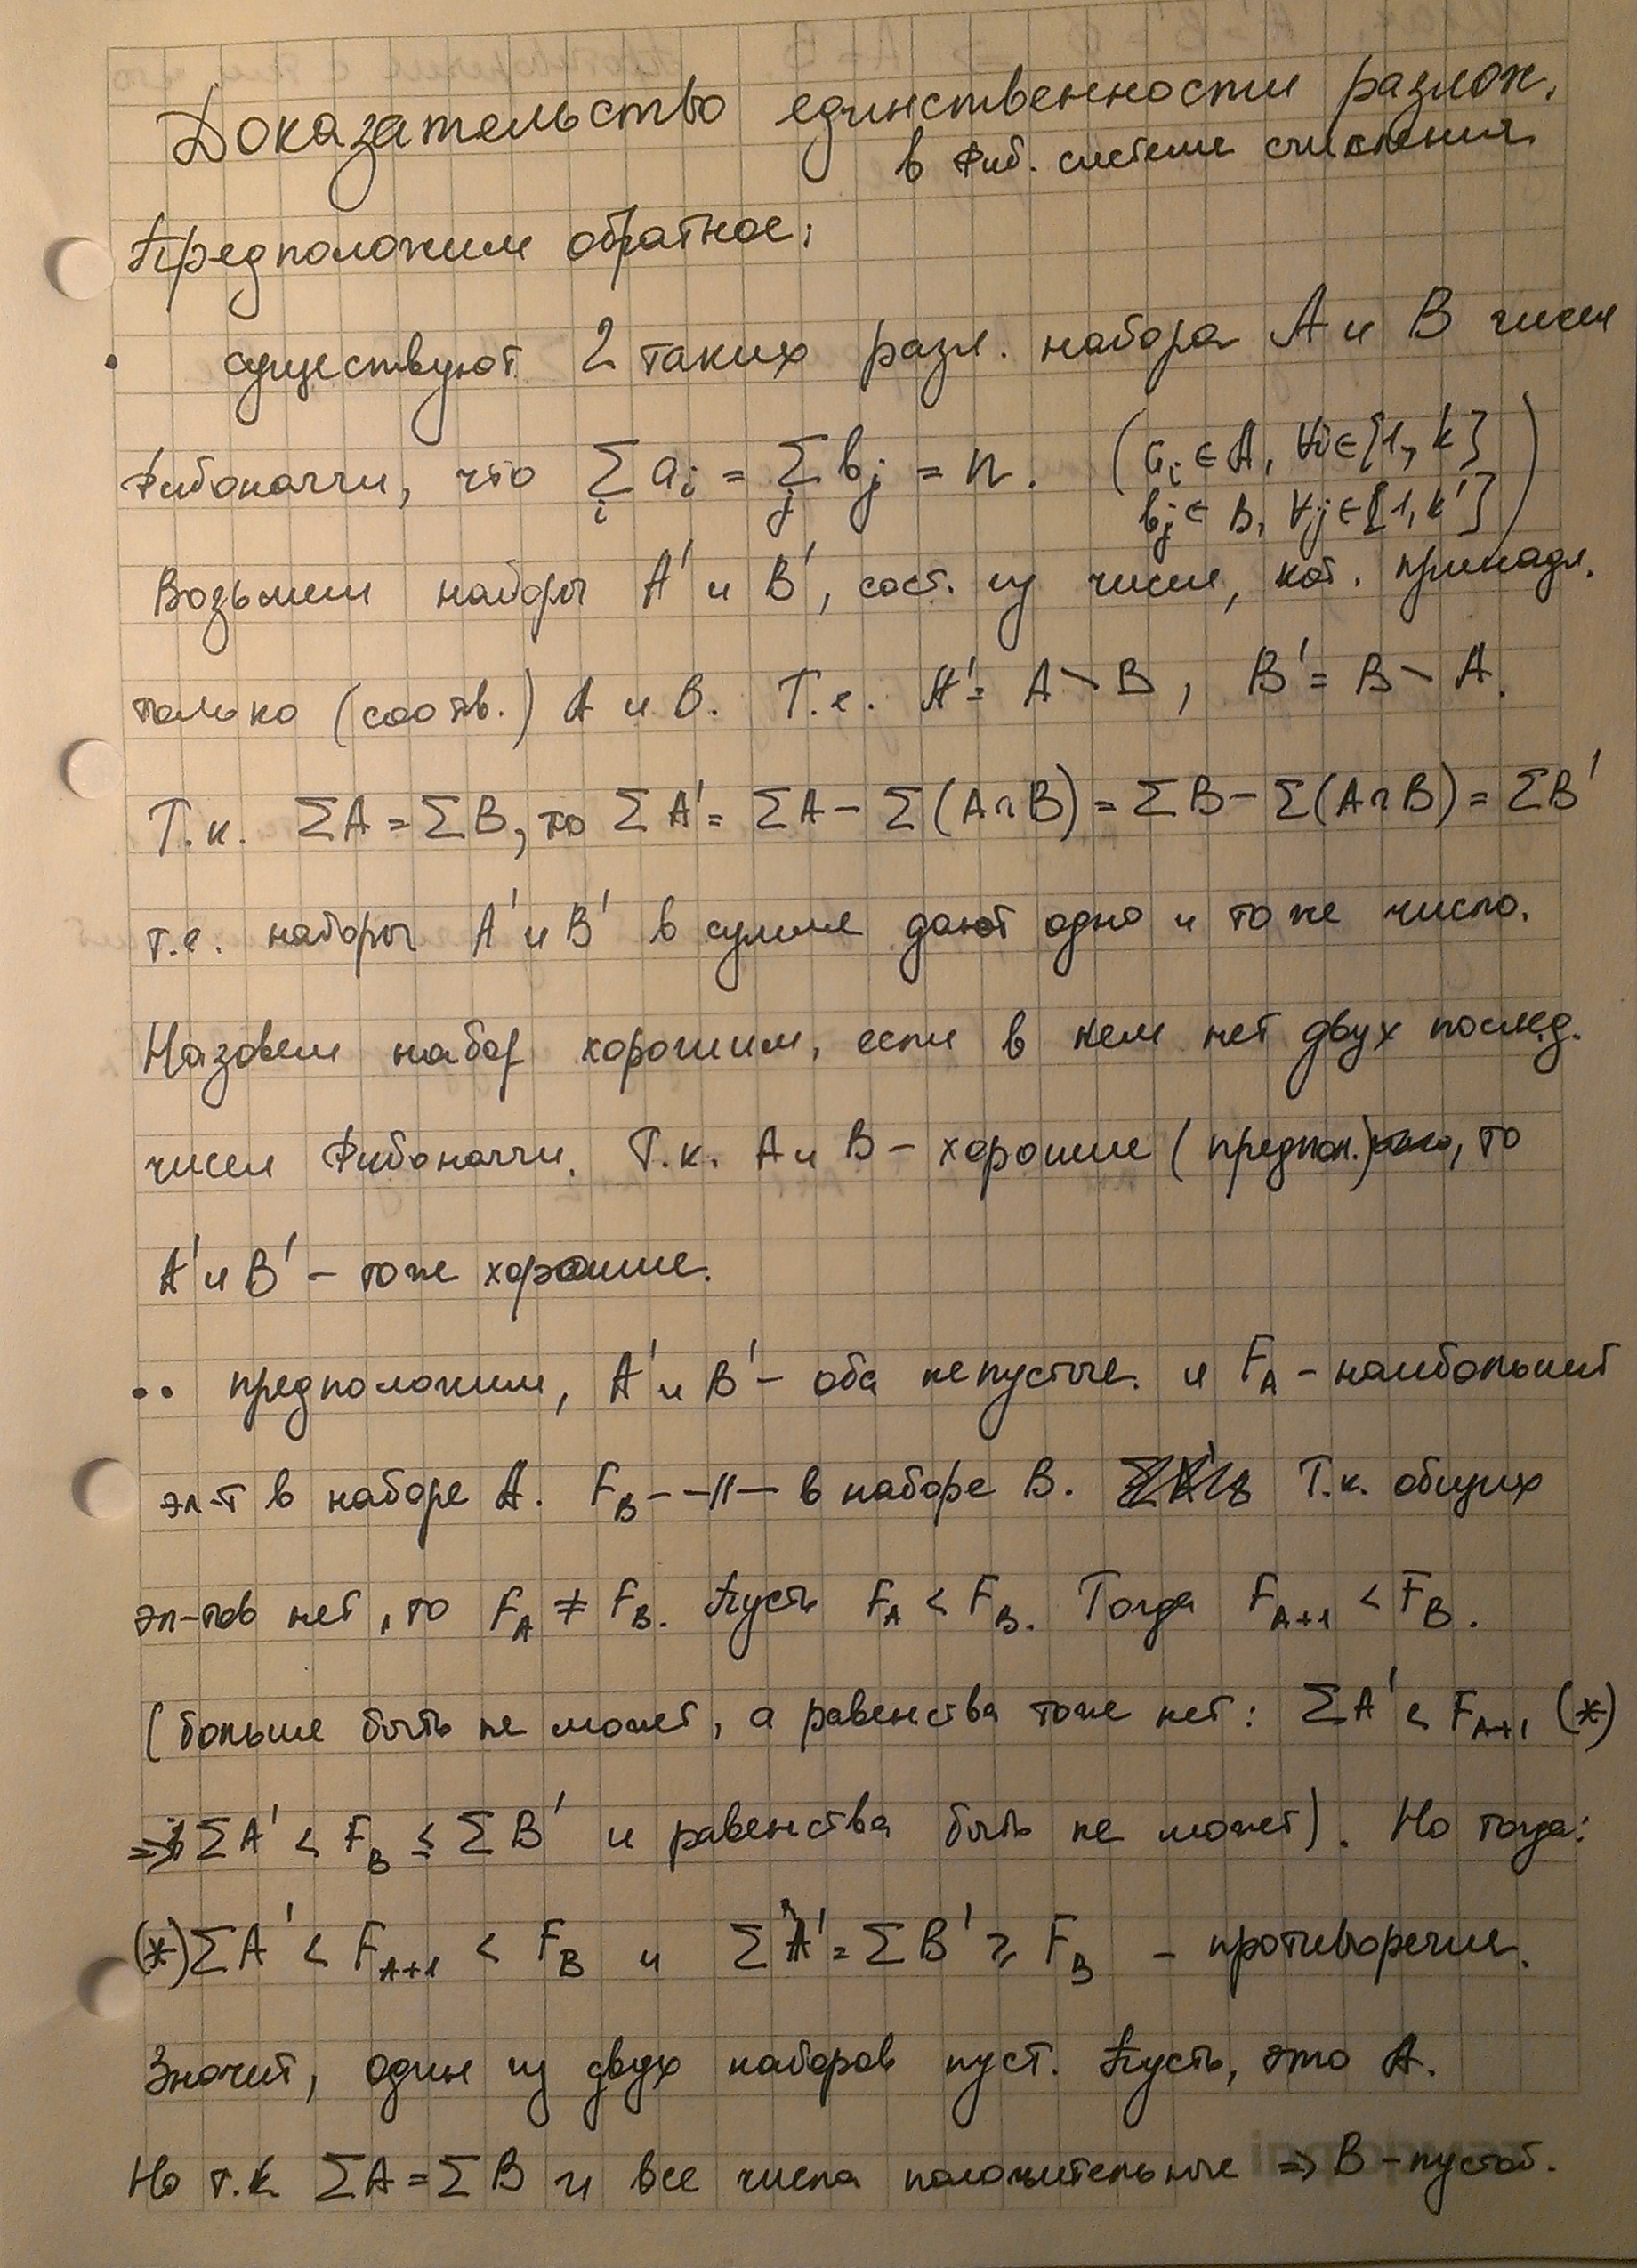 Доказательство единственности разлож.
в Фиб. системе счисления
Предположим обратное:
• существуют 2 таких разл. набора A и B чисел
Фибоначчи, что ∑_i a_i = ∑_j b_j = n. (a_i ∈ A, ∀i∈{1, k}
b_j ∈ B, ∀j∈{1, k'})
Возьмем наборы A' и B', сост. из чисел, кот. принадл.
только (соотв.) A и B. Т.е. A' = A \ B, B' = B \ A.
Т.к. ∑A = ∑B, то ∑A' = ∑A - ∑(A∩B) = ∑B - ∑(A∩B) = ∑B'
т.е. наборы A' и B' в сумме дают одно и то же число.
Назовем набор хорошим, если в нем нет двух послед.
чисел Фибоначчи. Т.к. A и B - хорошие (предпол.), то
A' и B' - тоже хорошие.
•• предположим, A' и B' - оба непустые. и F_A - наибольший
эл-т в наборе A. F_B - -//- в наборе B. Т.к. общих
эл-тов нет, то F_A ≠ F_B. Пусть F_A < F_B. Тогда F_{A+1} < F_B.
(больше быть не может, а равенства тоже нет: ∑A' < F_{A+1} (*)
⇒ ∑A' < F_B ≤ ∑B' и равенства быть не может). Но тогда:
(*) ∑A' < F_{A+1} < F_B и ∑A' = ∑B' ⩾ F_B - противоречие.
Значит, один из двух наборов пуст. Пусть, это A.
Но т.к. ∑A = ∑B и все числа положительные ⇒ B - пустой.